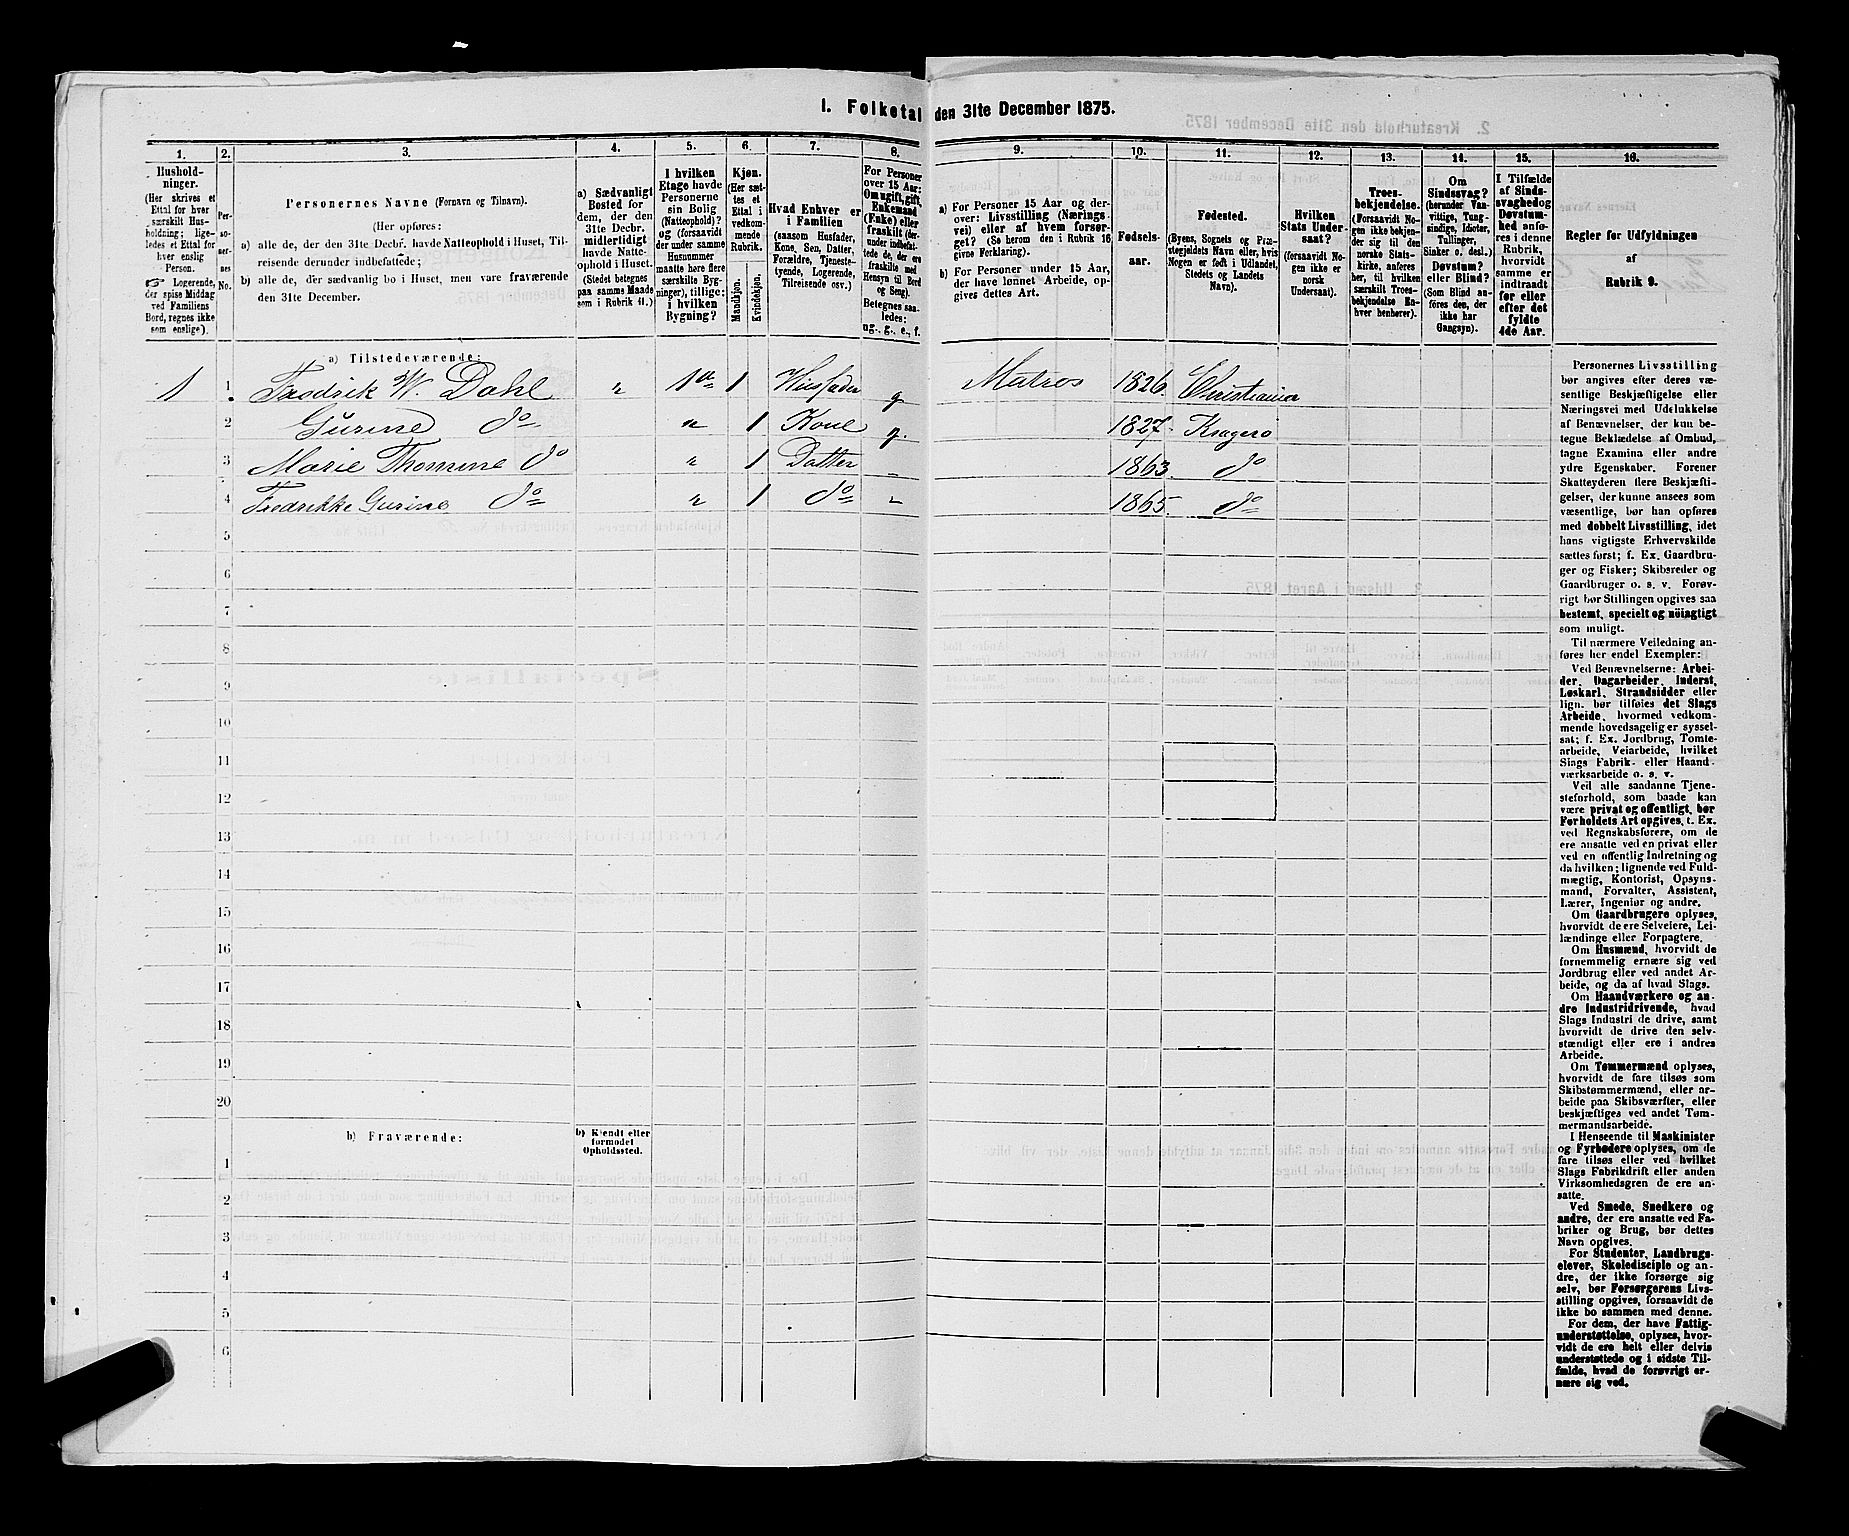 1. Folketal den 31te December 1875.
1. 2. 3. 4. 5. 6. 7. 8. 9. 10. 11. 12. 13. 14. 15. 16.
Hushold-
ninger.
(Her skrives et
Ettal for hver
særskilt Hus-
holdning; lige-
ledes et Ettal for
hver enslig
Person.
☞ Logerende,
der spise Middag
ved Familiens
Bord, regnes ikke
som enslige).
Per-
so-
ner-
nes
No.
Personernes Navne (Fornavn og Tilnavn).
(Her opføres:
a) alle de, der den 31te Decbr. havde Natteophold i Huset, Til-
reisende derunder indbefattede;
b) alle de, der sædvanlig bo i Huset, men vare fraværende
den 31te December.
a) Sædvanligt
Bosted for
dem, der den
31te Decbr.
midlertidigt
havde Natte-
ophold i Huset.
(Stedet betegnes
paa samme Maade
som i Rubrik 11.)
I hvilken
Etage havde
Personerne
sin Bolig
(Natteophold)?
og (forsaavidt
der under samme
Husnummer
maatte høre flere
særskilte Byg-
ninger), tillige:
i hvilken
Bygning?
Kjøn.
(Her sæt-
tes et
Ettal i
vedkom-
mende
Rubrik.
Mandkjøn.
Kvindekjøn.
Hvad Enhver er
i Familien
(saasom Husfader,
Kone, Søn, Datter,
Forældre, Tjeneste-
tyende, Logerende,
Tilreisende osv.)
For Personer
over 15 Aar:
Om ugift, gift,
Enkemand
(Enke) eller
fraskilt (der-
under indbefat-
tede de, der ere
fraskilte med
Hensyn til Bord
og Seng).
Betegnes saa-
ledes:
ug., g., e., f.
a) For Personer 15 Aar og der-
over: Livsstilling (Nærings-
vei) eller af hvem forsør-
get? (Se herom den i Rubrik 16
givne Forklaring).
b) For Personer under 15 Aar,
der have lønnet Arbeide, op-
gives dettes Art.
Fødsels-
aar.
Fødested.
(Byens, Sognets og Præ-
stegjeldets Navn eller, hvis
Nogen er født i Udlandet,
Stedets og Landets
Navn).
Hvilken
Stats Under-
saat?
(forsaavidt No-
gen ikke er
norsk
Undersaat).
Troes-
bekjendelse.
(Forsaavidt No-
gen ikke bekjen-
der sig til den
norske Stats-
kirke, anføres
her, til hvilken
særskilt Troes-
bekjendelse En-
hver henhører).
Om
Sindssvag?
(herunder Van-
vittige, Tung-
sindige, Idioter,
Tullinger,
Sinker o. desl.)
Døvstum?
eller Blind?
(Som Blind an-
føres den, der
ikke har
Gangsyn).
I Tilfælde
af Sinds-
svaghed og
Døvstum-
hed anfø-
res i denne
Rubrik,
hvorvidt
samme er
indtraadt
før eller
efter det
fyldte
4de Aar.
Regler for Udfyldningen
af
Rubrik 9.
a) Tilstedeværende:
1 1 Fredrik W. Dahl " 1ste 1 Husfader g Matros 1826. Christiania
2 Gurine do " 1 Kone g. 1827. Kragerø
3 Marie Thomine do " 1 Datter " 1863. do
4 Fredrikke Gurine do " 1 do " 1865. do
5
6
7
8
9
10
11
12
13
14
15
16
17
18
19
20
b) Fraværende:
b) Kjendt eller
formodet
Opholdssted.
1
2
3
4
5
6
Personernes Livsstilling
bør angives efter deres væ-
sentlige Beskjæftigelse eller
Næringsvei med Udelukkelse
af Benævnelser, der kun be-
tegne Beklædelse af Ombud,
tagne Examina eller andre
ydre Egenskaber. Forener
Skatteyderen flere Beskjæfti-
gelser, der kunne ansees som
væsentlige, bør han opføres
med dobbelt Livsstilling, idet
hans vigtigste Erhvervskilde
sættes først; f. Ex. Gaardbru-
ger og Fisker; Skibsreder og
Gaardbruger o. s. v. Forøv-
rigt bør Stillingen opgives saa
bestemt, specielt og nöiagtigt
som muligt.
Til nærmere Veiledning an-
føres her endel Exempler:
Ved Benævnelserne: Arbei-
der, Dagarbeider, Inderst,
Løskarl, Strandsidder eller
lign. bør tilføies det Slags
Arbeide, hvormed vedkom-
mende hovedsagelig er syssel-
sat; f. Ex. Jordbrug, Tomte-
arbeide, Veiarbeide, hvilket
Slags Fabrik- eller Haand-
værksarbeide o. s. v.
Ved alle saadanne Tjene-
steforhold, som baade kan
være privat og offentligt, bør
Forholdets Art opgives, f. Ex.
ved Regnskabsførere, om de
ere ansatte ved en privat eller
ved en offentlig Indretning og
da hvilken; lignende ved Fuld-
mægtig, Kontorist, Opsyns-
mand, Forvalter, Assistent,
Lærer, Ingeniør og andre.
Om Gaardbrugere oplyses,
hvorvidt de ere Selveiere, Lei-
lændinge eller Forpagtere.
Om Husmænd, hvorvidt de
fornemmelig ernære sig ved
Jordbrug eller ved andet Ar-
beide, og da af hvad Slags.
Om Haandværkere og an-
dre Industridrivende, hvad
Slags Industri de drive, samt
hvorvidt de drive den selv-
stændigt eller ere i andres
Arbeide.
Om Tømmermænd oplyses,
hvorvidt de fare tilsøs som
Skibstømmermænd, eller ar-
beide paa Skibsværfter, eller
beskjæftiges ved andet Tøm-
mermandsarbeide.
I Henseende til Maskinister
og Fyrbødere oplyses, om de
fare tilsøs eller ved hvilket
Slags Fabrikdrift eller anden
Virksomhedsgren de ere an-
satte.
Ved Smede, Snedkere og
andre, der ere ansatte ved Fa-
briker og Brug, bør dettes
Navn opgives.
For Studenter, Landbrugs-
elever, Skoledisciple og an-
dre, der ikke forsørge sig
selv, bør Forsørgerens Livs-
stilling opgives, forsaavidt de
ikke bo sammen med denne.
For dem, der have Fattig-
understøttelse, oplyses, hvor-
vidt de ere helt eller delvis
understøttede og i sidste Til-
fælde, hvad de forøvrigt er-
nære sig ved.